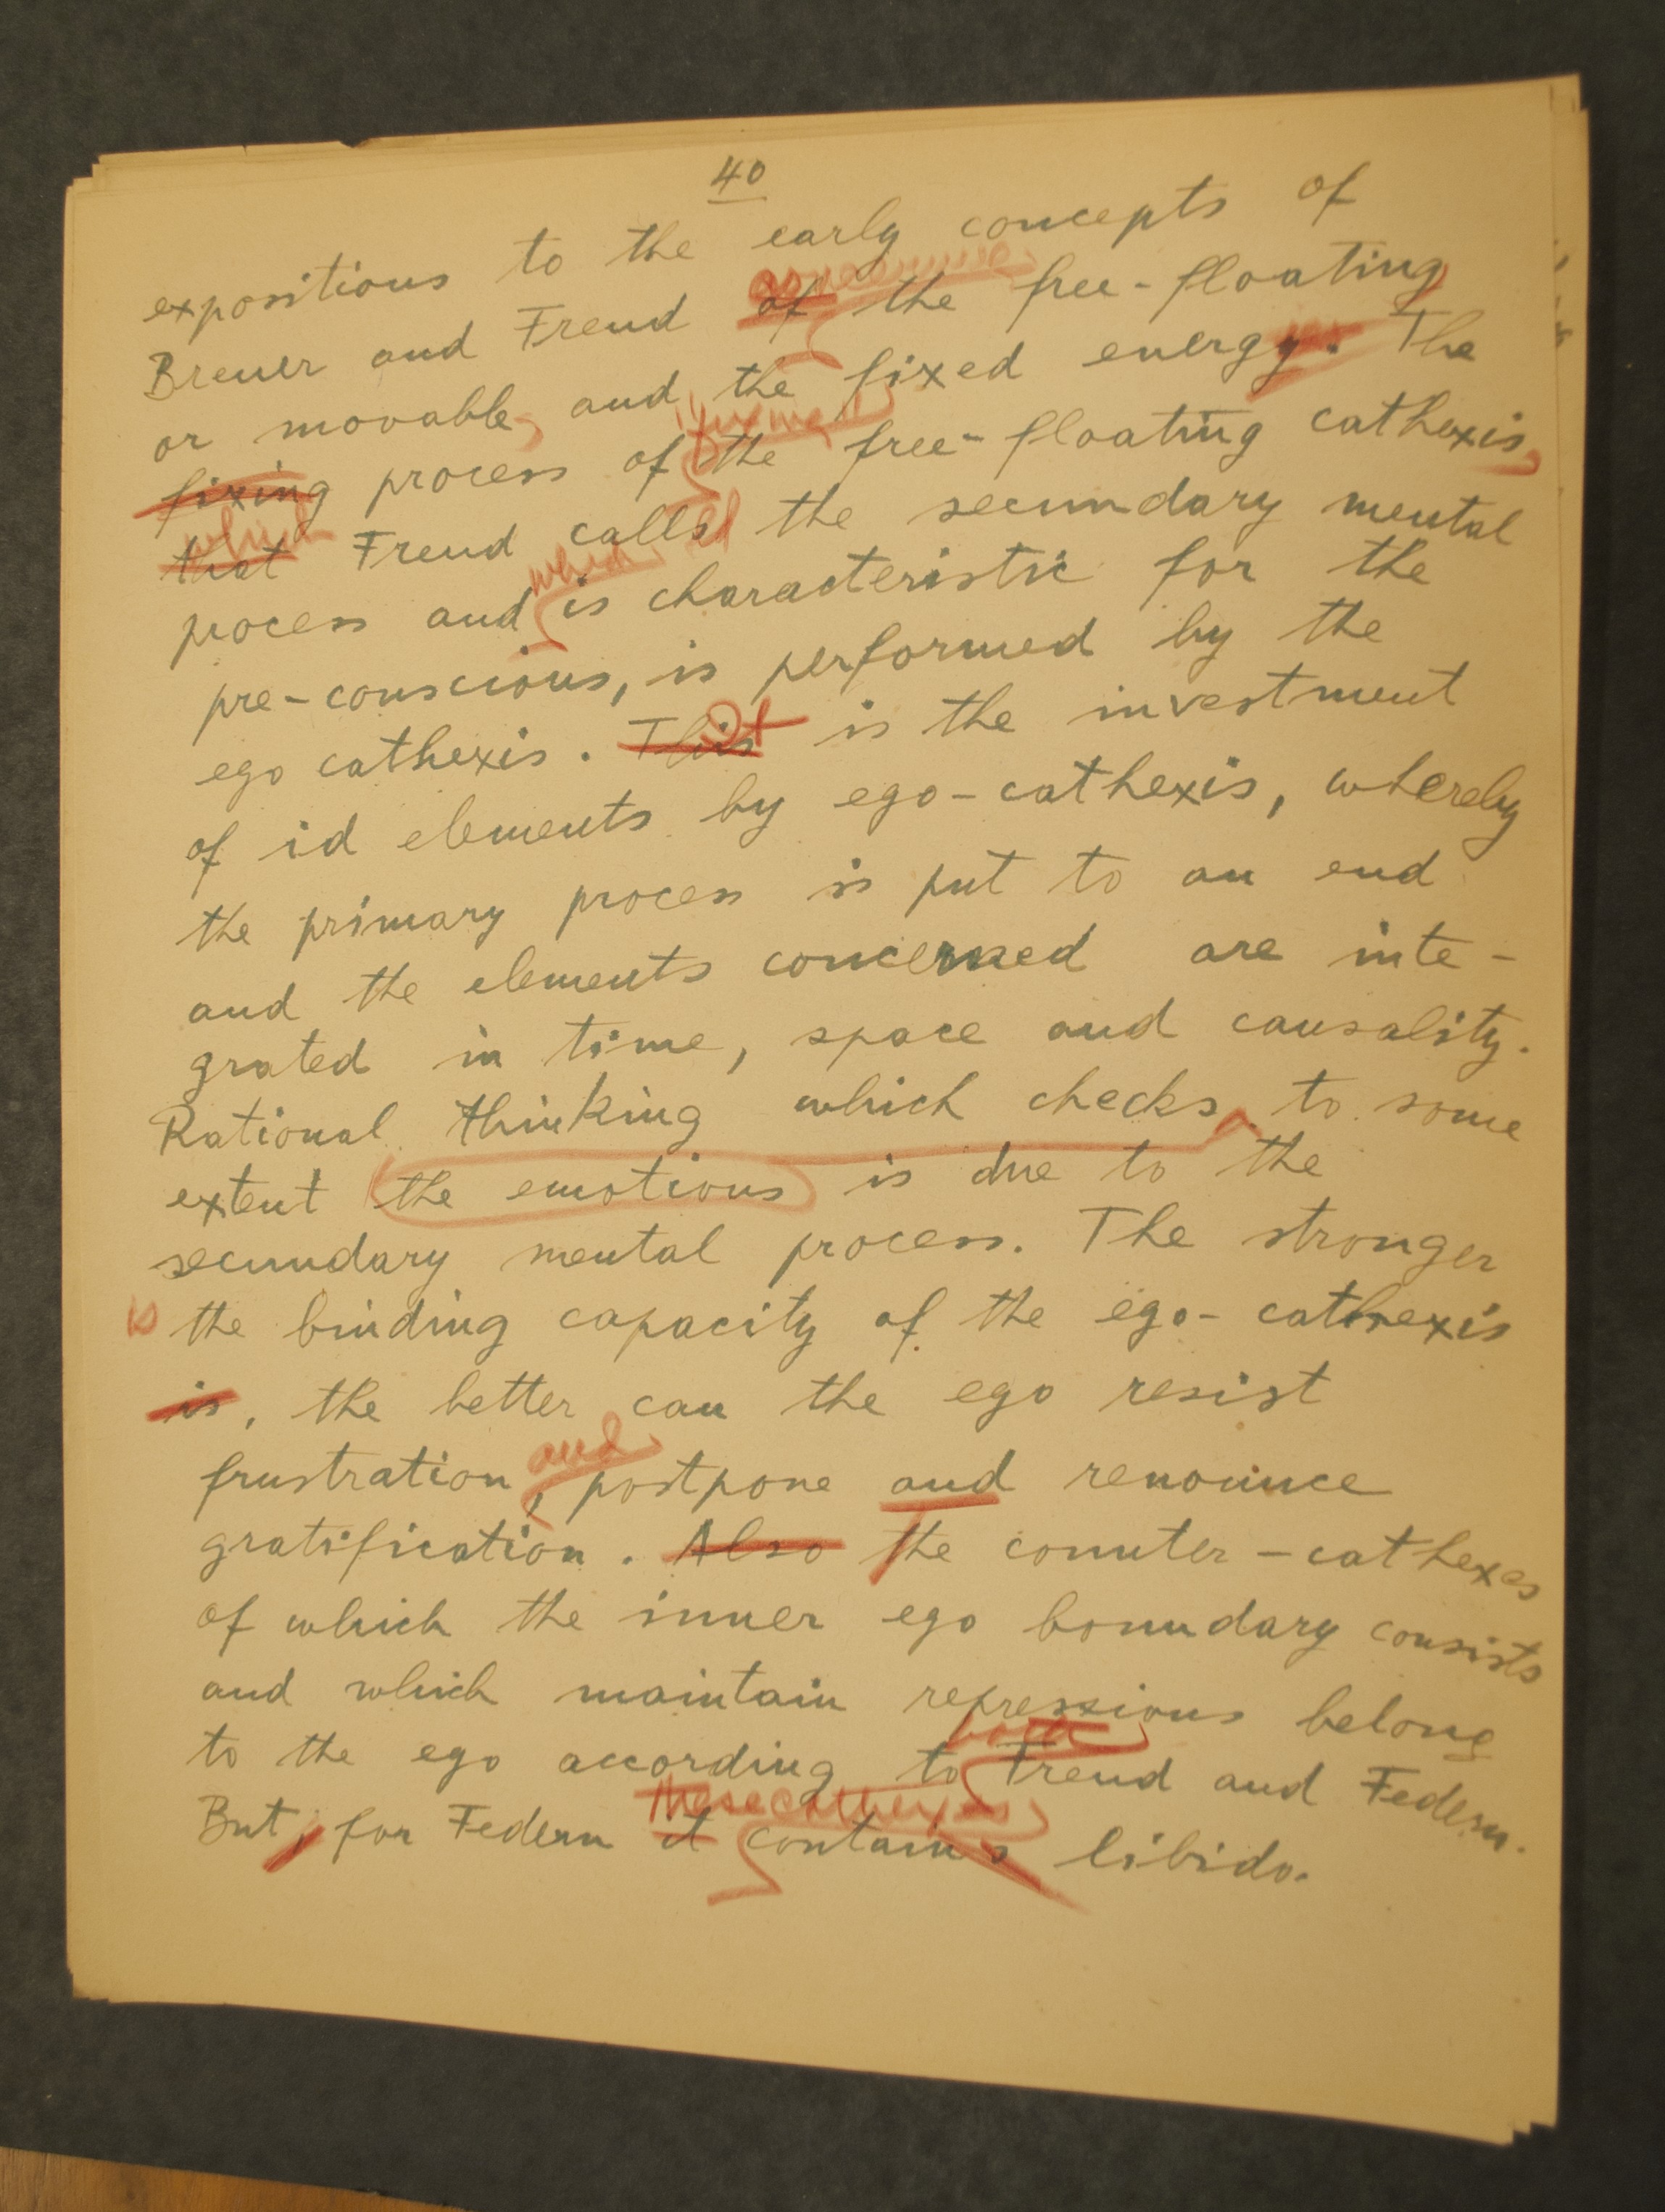 40
expositions to the early concepts of
concerning
Breuer and Freud of the free-floating
or movable, and the fixed energy. The
fixing process of the free-floating cathexis,
which
that Freud calls the secundary mental
which
process and is characteristic for the
pre-conscious, is performed by the
ego cathexis. This It is the investment
of id elements by ego-cathexis, whereby
the primary process is put to an end
and the elements concerned are inte-
grated in time, space and causality.
Rational thinking which checks to some
extent the emotions is due to the
secundary mental process. The stronger
is the binding capacity of the ego-cathexis
is, the better can the ego resist
and
frustration, postpone and renounce
gratification. Also the counter-cathexes
of which the inner ego boundary consists
and which maintain repressions belong
both
to the ego according to Freud and Federn.
these cathexes
But, for Federn it contains libido.